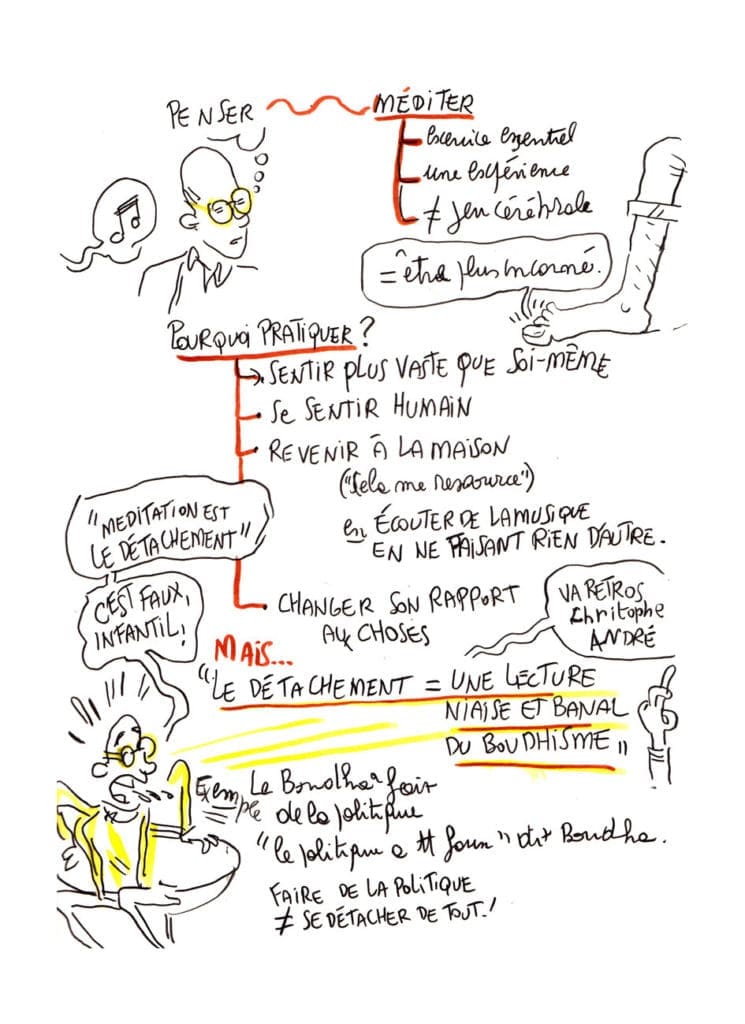 PENSER
MÉDITER
Exercice essentiel
une expérience
≠ jeu cérébrale
= être plus incarné.
POURQUOI PRATIQUER ?
SENTIR PLUS VASTE QUE SOI-MÊME
Se SENTIR HUMAIN
REVENIR À LA MAISON
("cela me ressource")
en ÉCOUTER DE LA MUSIQUE
EN NE FAISANT RIEN D'AUTRE.
"MEDITATION EST
LE DÉTACHEMENT"
C'EST FAUX,
INFANTIL!
CHANGER SON RAPPORT
AUX CHOSES
VA RETROS
Christophe
ANDRÉ
MAIS...
"LE DÉTACHEMENT = UNE LECTURE
NIAISE ET BANAL
DU BOUDHISME"
Exemple
Le Boudha fait
de la politique
"le politique a" dit Boudha.
FAIRE DE LA POLITIQUE
≠ SE DÉTACHER DE TOUT.!